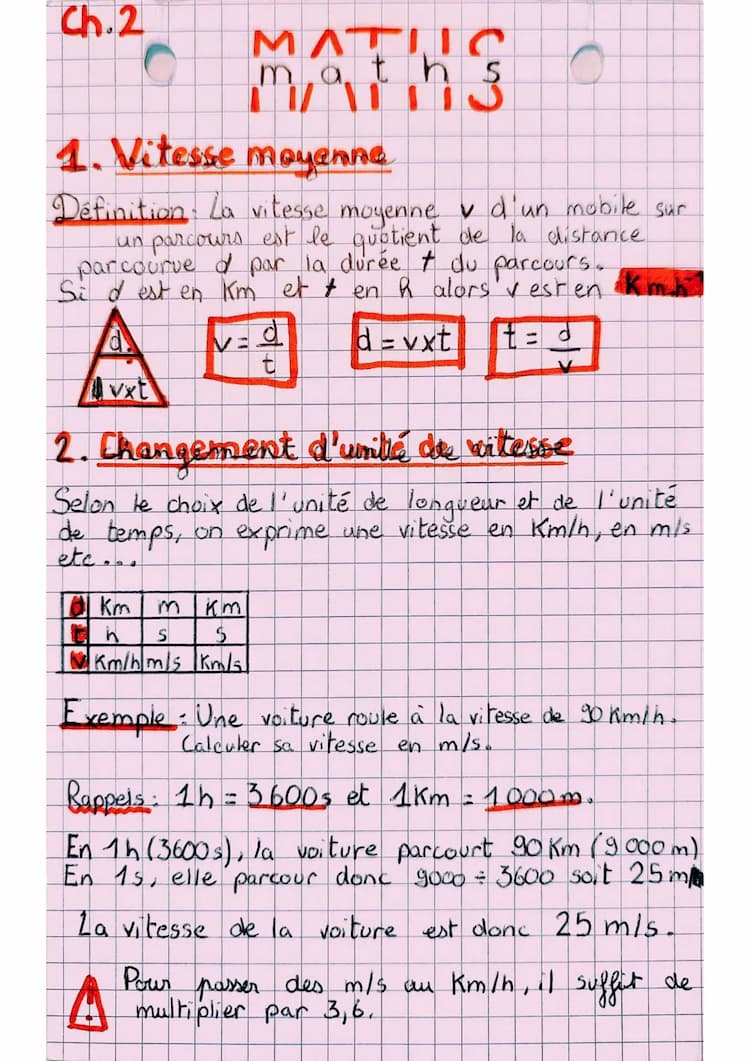 Ch.2
MATHS
maths
MATHS
1. Vitesse moyenne
Définition: La vitesse moyenne v d'un mobile sur
un parcours est le quotient de la distance
parcourue d par la durée t du parcours.
Si d est en Km et t en h alors v est en Km.h⁻¹
d
vxt
v = d/t
d = vxt
t = d/v
2. Changement d'unité de vitesse
Selon le choix de l'unité de longueur et de l'unité
de temps, on exprime une vitesse en Km/h, en m/s
etc...
d Km m Km
t h s s
v Km/h m/s Km/s
Exemple: Une voiture roule à la vitesse de 90 Km/h.
Calculer sa vitesse en m/s.
Rappels: 1h = 3600s et 1Km = 1000m.
En 1h (3600s), la voiture parcourt 90 Km (9000m)
En 1s, elle parcour donc 9000 ÷ 3600 soit 25m
La vitesse de la voiture est donc 25 m/s.
! Pour passer des m/s au Km/h, il suffit de
multiplier par 3,6.